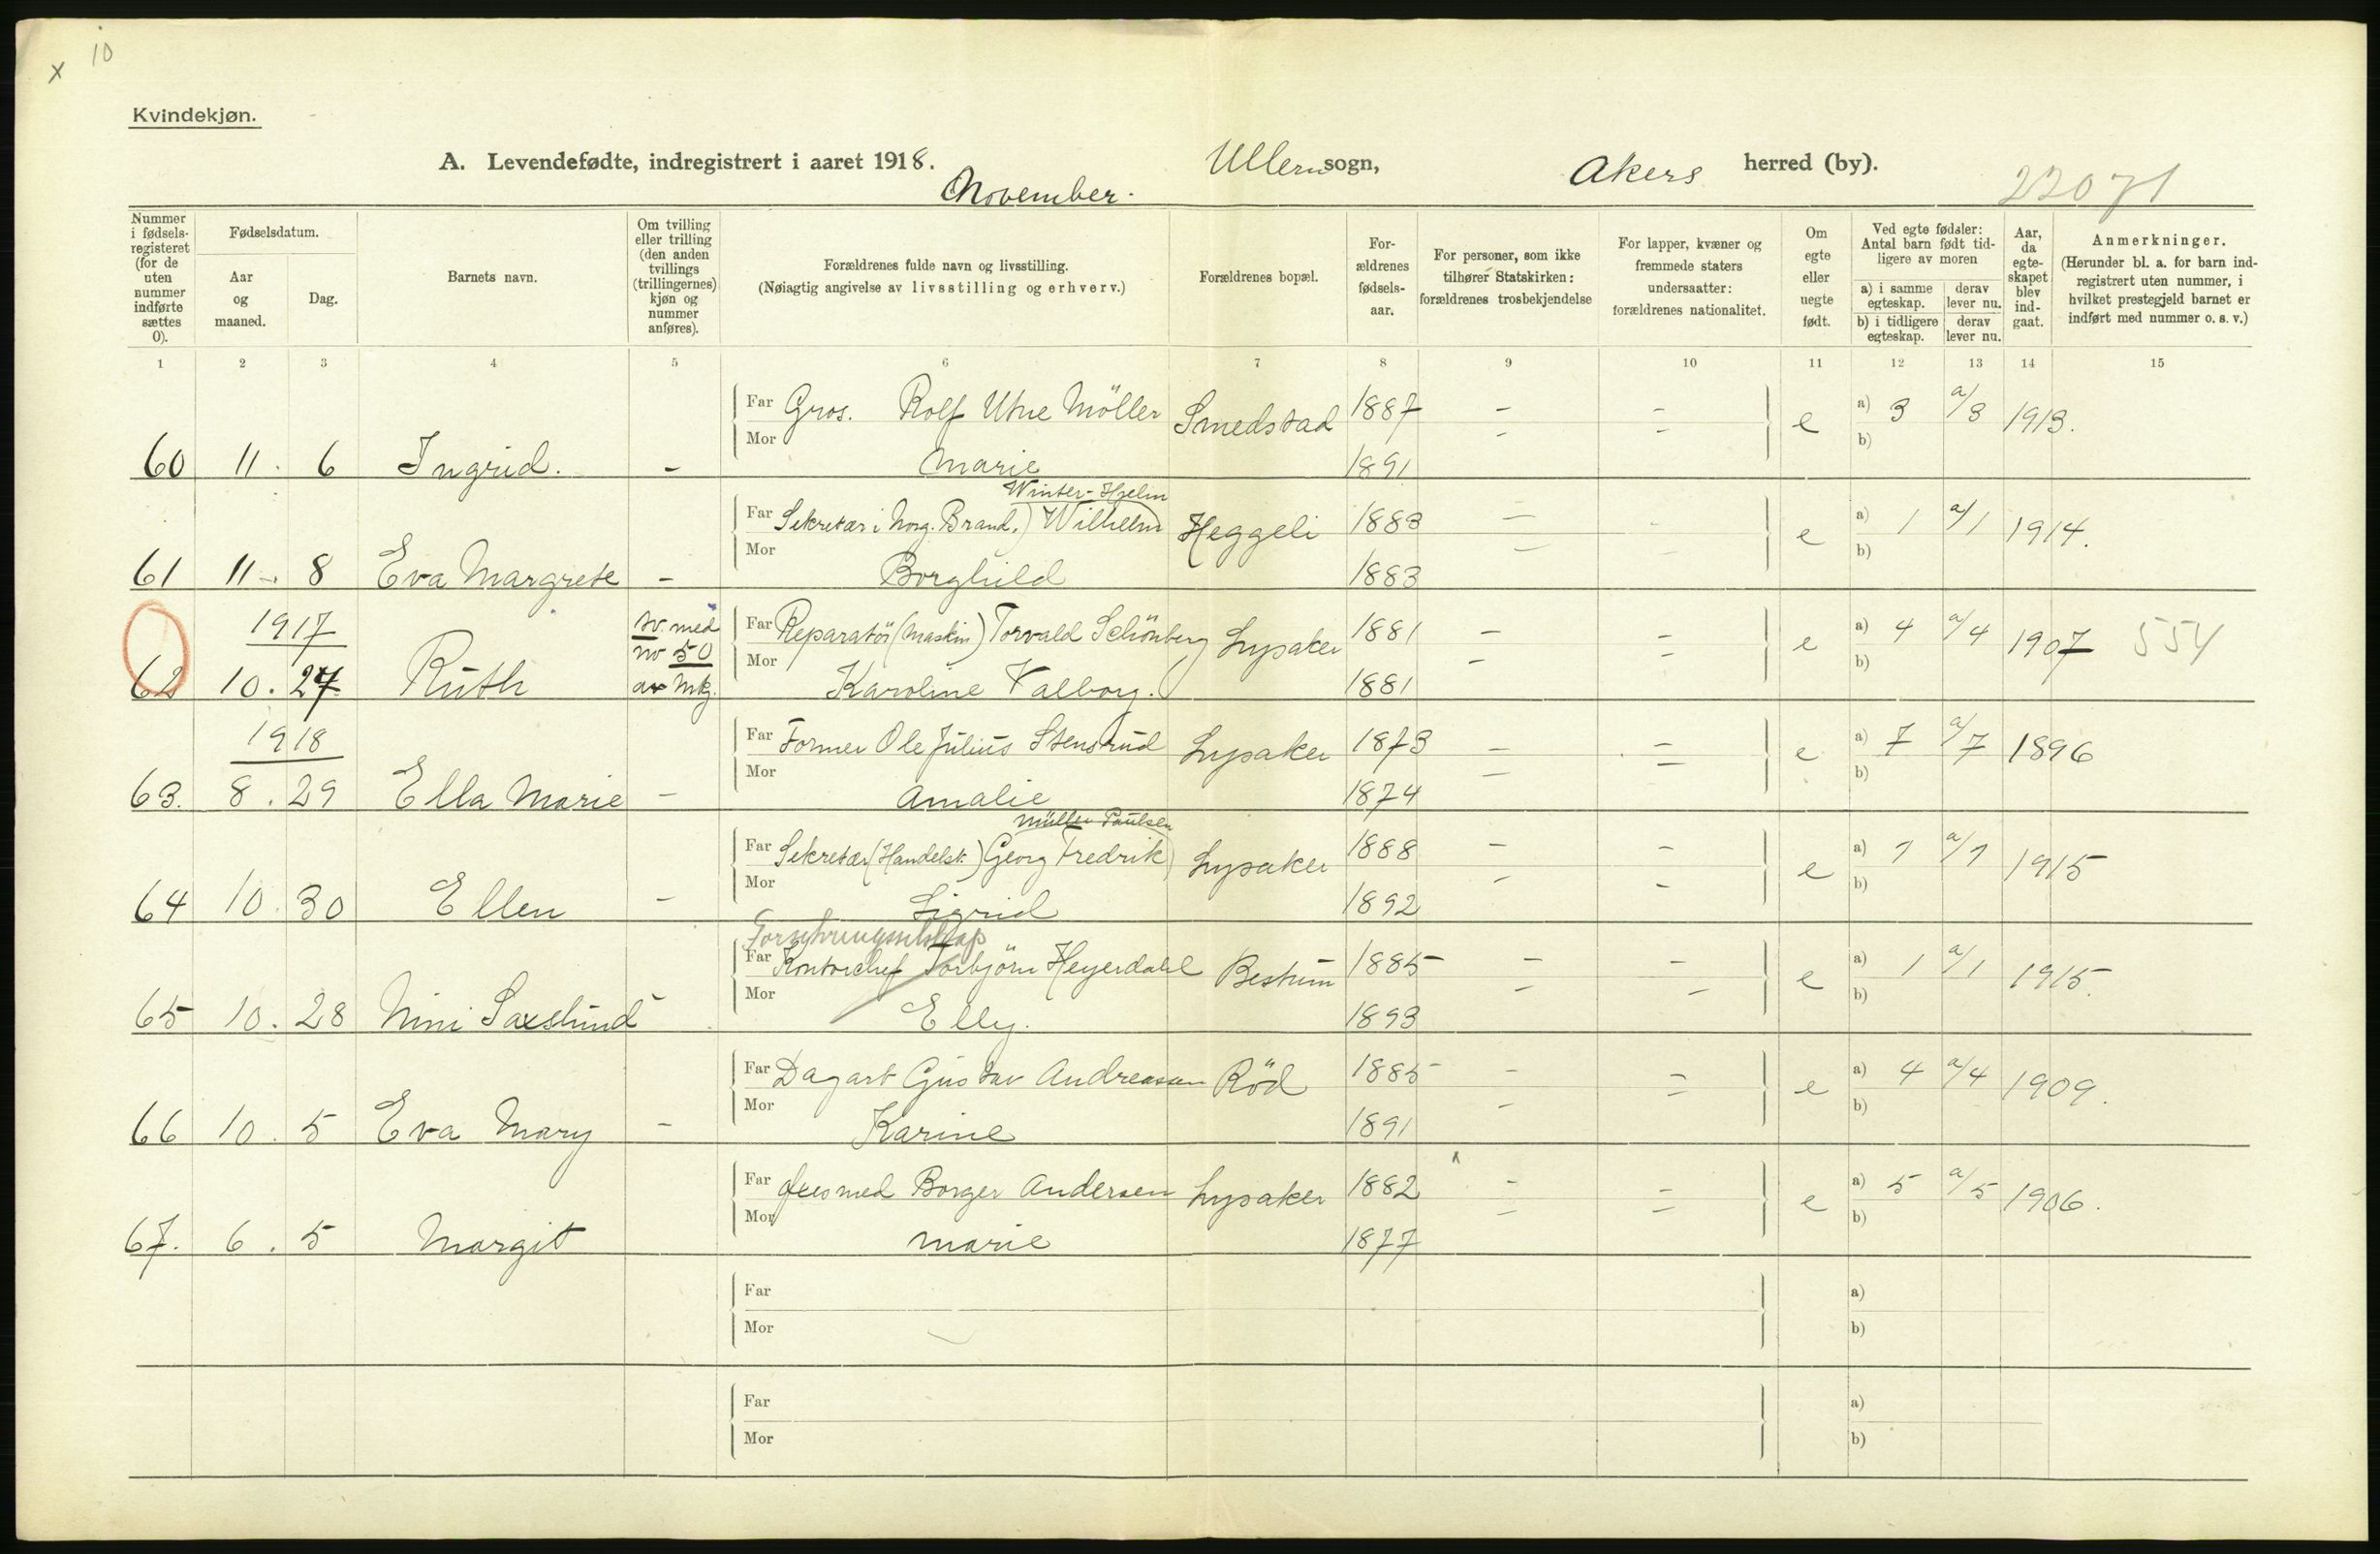 x 10
Kvindekjøn.
A. Levendefødte, indregistrert i aaret 1918. Ullern sogn, Akers herred (by).
November. 22071
Nummer i fødsels-registeret (for de uten nummer indførte sættes 0).
Fødselsdatum.
Aar og maaned.
Dag.
Barnets navn.
Om tvilling eller trilling (den anden tvillings (trillingernes) kjøn og nummer anføres).
Forældrenes fulde navn og livsstilling.
(Nøiagtig angivelse av livsstilling og erhverv.)
Forældrenes bopæl.
For-ældrenes fødsels-aar.
For personer, som ikke tilhører Statskirken: forældrenes trosbekjendelse
For lapper, kvæner og fremmede staters undersaatter: forældrenes nationalitet.
Om egte eller uegte født.
Ved egte fødsler: Antal barn født tid-ligere av moren
a) i samme egteskap.
derav lever nu.
b) i tidligere egteskap.
derav lever nu.
Aar, da egte-skapet blev ind-gaat.
Anmerkninger.
(Herunder bl. a. for barn ind-registrert uten nummer, i hvilket prestegjeld barnet er indført med nummer o. s. v.)
1 2 3 4 5 6 7 8 9 10 11 12 13 14 15
Far Gros. Rolf Utne Möller Smedstad 1887 - - e a) 3 a/3 1913.
Mor - - b)
60 11. 6 Ingrid. - Marie 1891
Winter-Hjelm
Far Sekretær i Norg. Brand.) Wilhelm Heggeli 1883 - - e a) 1 a/1 1914.
Mor - - b)
61 11. 8 Eva Margrete - Borghild 1883
1917 tv. med Far Reparatör (Maskin) Torvald Schönberg Lysaker 1881 - - e a) 4 a/4 1907 554
nr 50 Mor - - b)
62 10. 27 Ruth av Mkj. Karoline Valborg. 1881
1918 Far Former Ole Julius Stensrud Lysaker 1873 - - e a) 7 a/7 1896
Mor - - b)
63. 8. 29 Ella Marie - Amalie 1874
Müller Paulsen
Far Sekretær (Handelst.) Georg Fredrik Lysaker 1888 - - e a) 1 a/1 1915
Mor - - b)
64 10. 30 Ellen - Sigrid 1892
Forsikringsselskap
Far Kontorchef Torbjörn Heyerdahl Bestum 1885 - - e a) 1 a/1 1915.
Mor - - b)
65 10. 28 Nini Saxslund - Elly. 1893
Far Dagarb Gustav Andreassen Röd 1885 - - e a) 4 a/4 1909.
Mor - - b)
66 10. 5 Eva Mary - Karine 1891
Far Borger Andersen Lysaker 1882 - - e a) 5 a/5 1906.
Mor - - b)
67. 6. 5 Margit Marie 1877
Far a)
Mor b)
Far a)
Mor b)